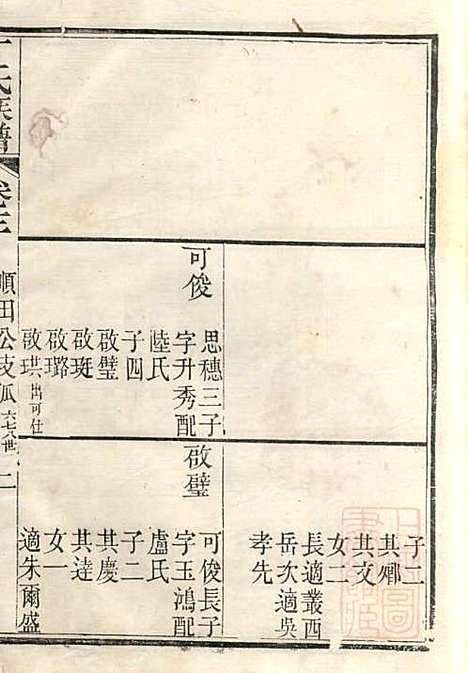 可俊
思穗三子
字升秀配
陸氏
子四
啟璧
啟珽
啟璐
啟珙出可仕
子二
其鄉
其文
女二
長適叢西
岳次適吳
孝先
啟璧
可俊長子
字玉鴻配
盧氏
子二
其慶
其達
女一
適朱爾盛
氏族譜
卷三
順田公支派六七八世
二